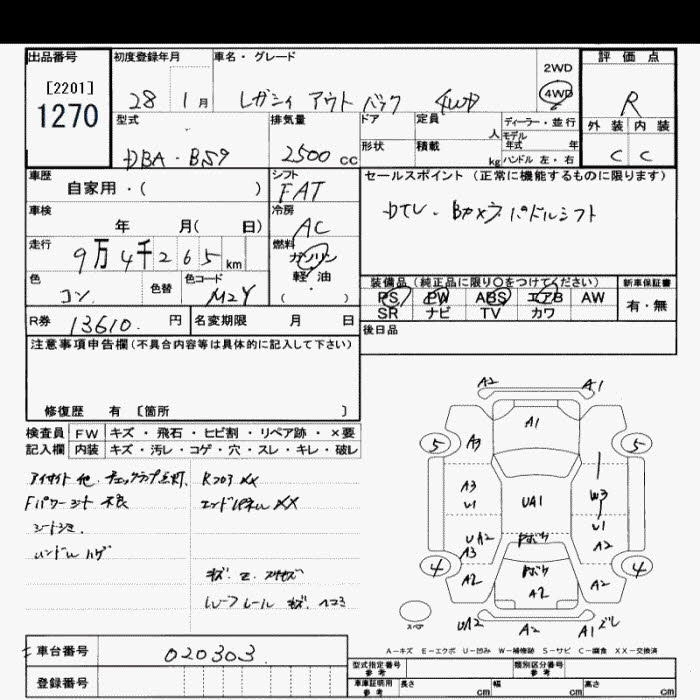 出品番号 初度登録年月 車名・グレード 評価点
[2201]
1270
28 1月 レガシィ アウトバック 4WD
2WD
4WD
R
型式 排気量 ドア 定員 人 ディーラー・並行
モデル年式 年
外装 内装
DBA・BS9 2500 cc 形状 積載 kg ハンドル 左・右
C C
車歴 自家用・( ) シフト FAT
セールスポイント(正常に機能するものに限ります)
車検 年 月( 日) 冷房 AC
DTV・Bカメラ パドルシフト
走行 9万4千265km 燃料 ガソリン
軽・油
( )
色 コン 色替 色コード M2Y
装備品(純正品に限り○をつけてください) 新車保証書
PS PW ABS エアB AW 有・無
SR ナビ TV カワ
R券 13610 円 名変期限 月 日
後日品
注意事項申告欄(不具合内容等は具体的に記入して下さい)
修復歴 有 [箇所 ]
検査員 FW キズ・飛石・ヒビ割・リペア跡・×要
記入欄 内装 キズ・汚レ・コゲ・穴・スレ・キレ・破レ
アイサイト他 チェックランプ点灯、
Fパワーシート不良
シートシミ
ハンドルハゲ
エンドパネルXX
ルーフレールキズ
A2 A1
A1
5 5
A3
A3
U1
UA1
W3
U1
UA2
A3
A2
4 4
A2 A2 A2
スペア
UA2 A2 A1
A-キズ E-エクボ U-凹み W-補修跡 S-サビ C-腐食 XX-交換済
車台番号 020303
登録番号
型式指定番号 参考 類別区分番号 参考
車庫証明用 参考 長さ cm 幅 cm 高さ cm